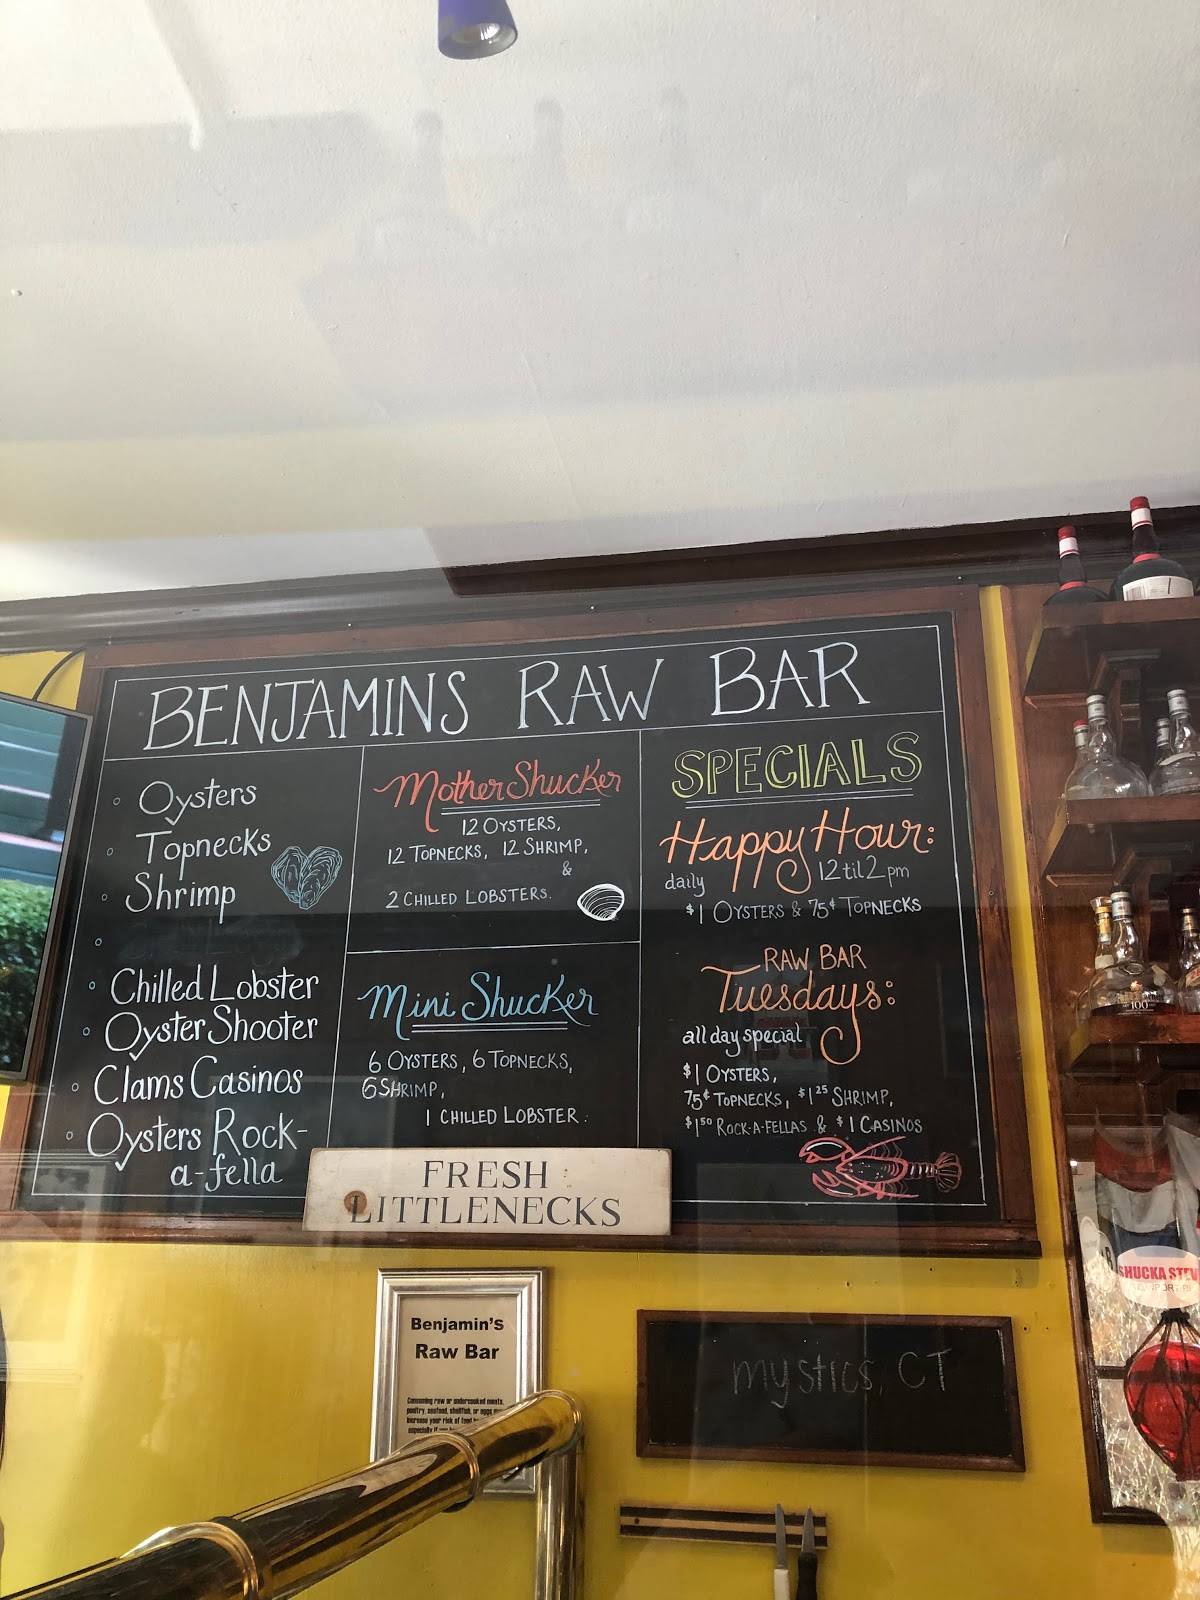 BENJAMINS RAW BAR
Oysters
Topnecks
Shrimp
Chilled Lobster
Oyster Shooter
Clams Casinos
Oysters Rock-
a-fella
Mother Shucker
12 OYSTERS,
12 TOPNECKS, 12 SHRIMP,
&
2 CHILLED LOBSTERS.
Mini Shucker
6 OYSTERS, 6 TOPNECKS,
6 SHRIMP,
1 CHILLED LOBSTER.
SPECIALS
Happy Hour:
daily 12 til 2pm
$1 OYSTERS & 75¢ TOPNECKS
RAW BAR
Tuesdays:
all day special
$1 OYSTERS,
75¢ TOPNECKS, $1.25 SHRIMP,
$1.50 ROCK-A-FELLAS & $1 CASINOS
FRESH
LITTLENECKS
Benjamin's
Raw Bar
Consuming raw or undercooked meats,
poultry, seafood, shellfish, or eggs
increase your risk of
especially if
mystics, CT
100
SHUCKA